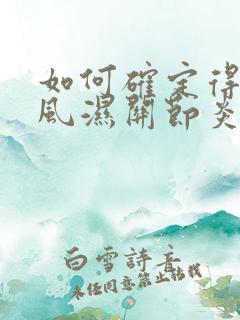 如何確定得
風濕關節炎
白雪詩音
未經同意禁止轉載